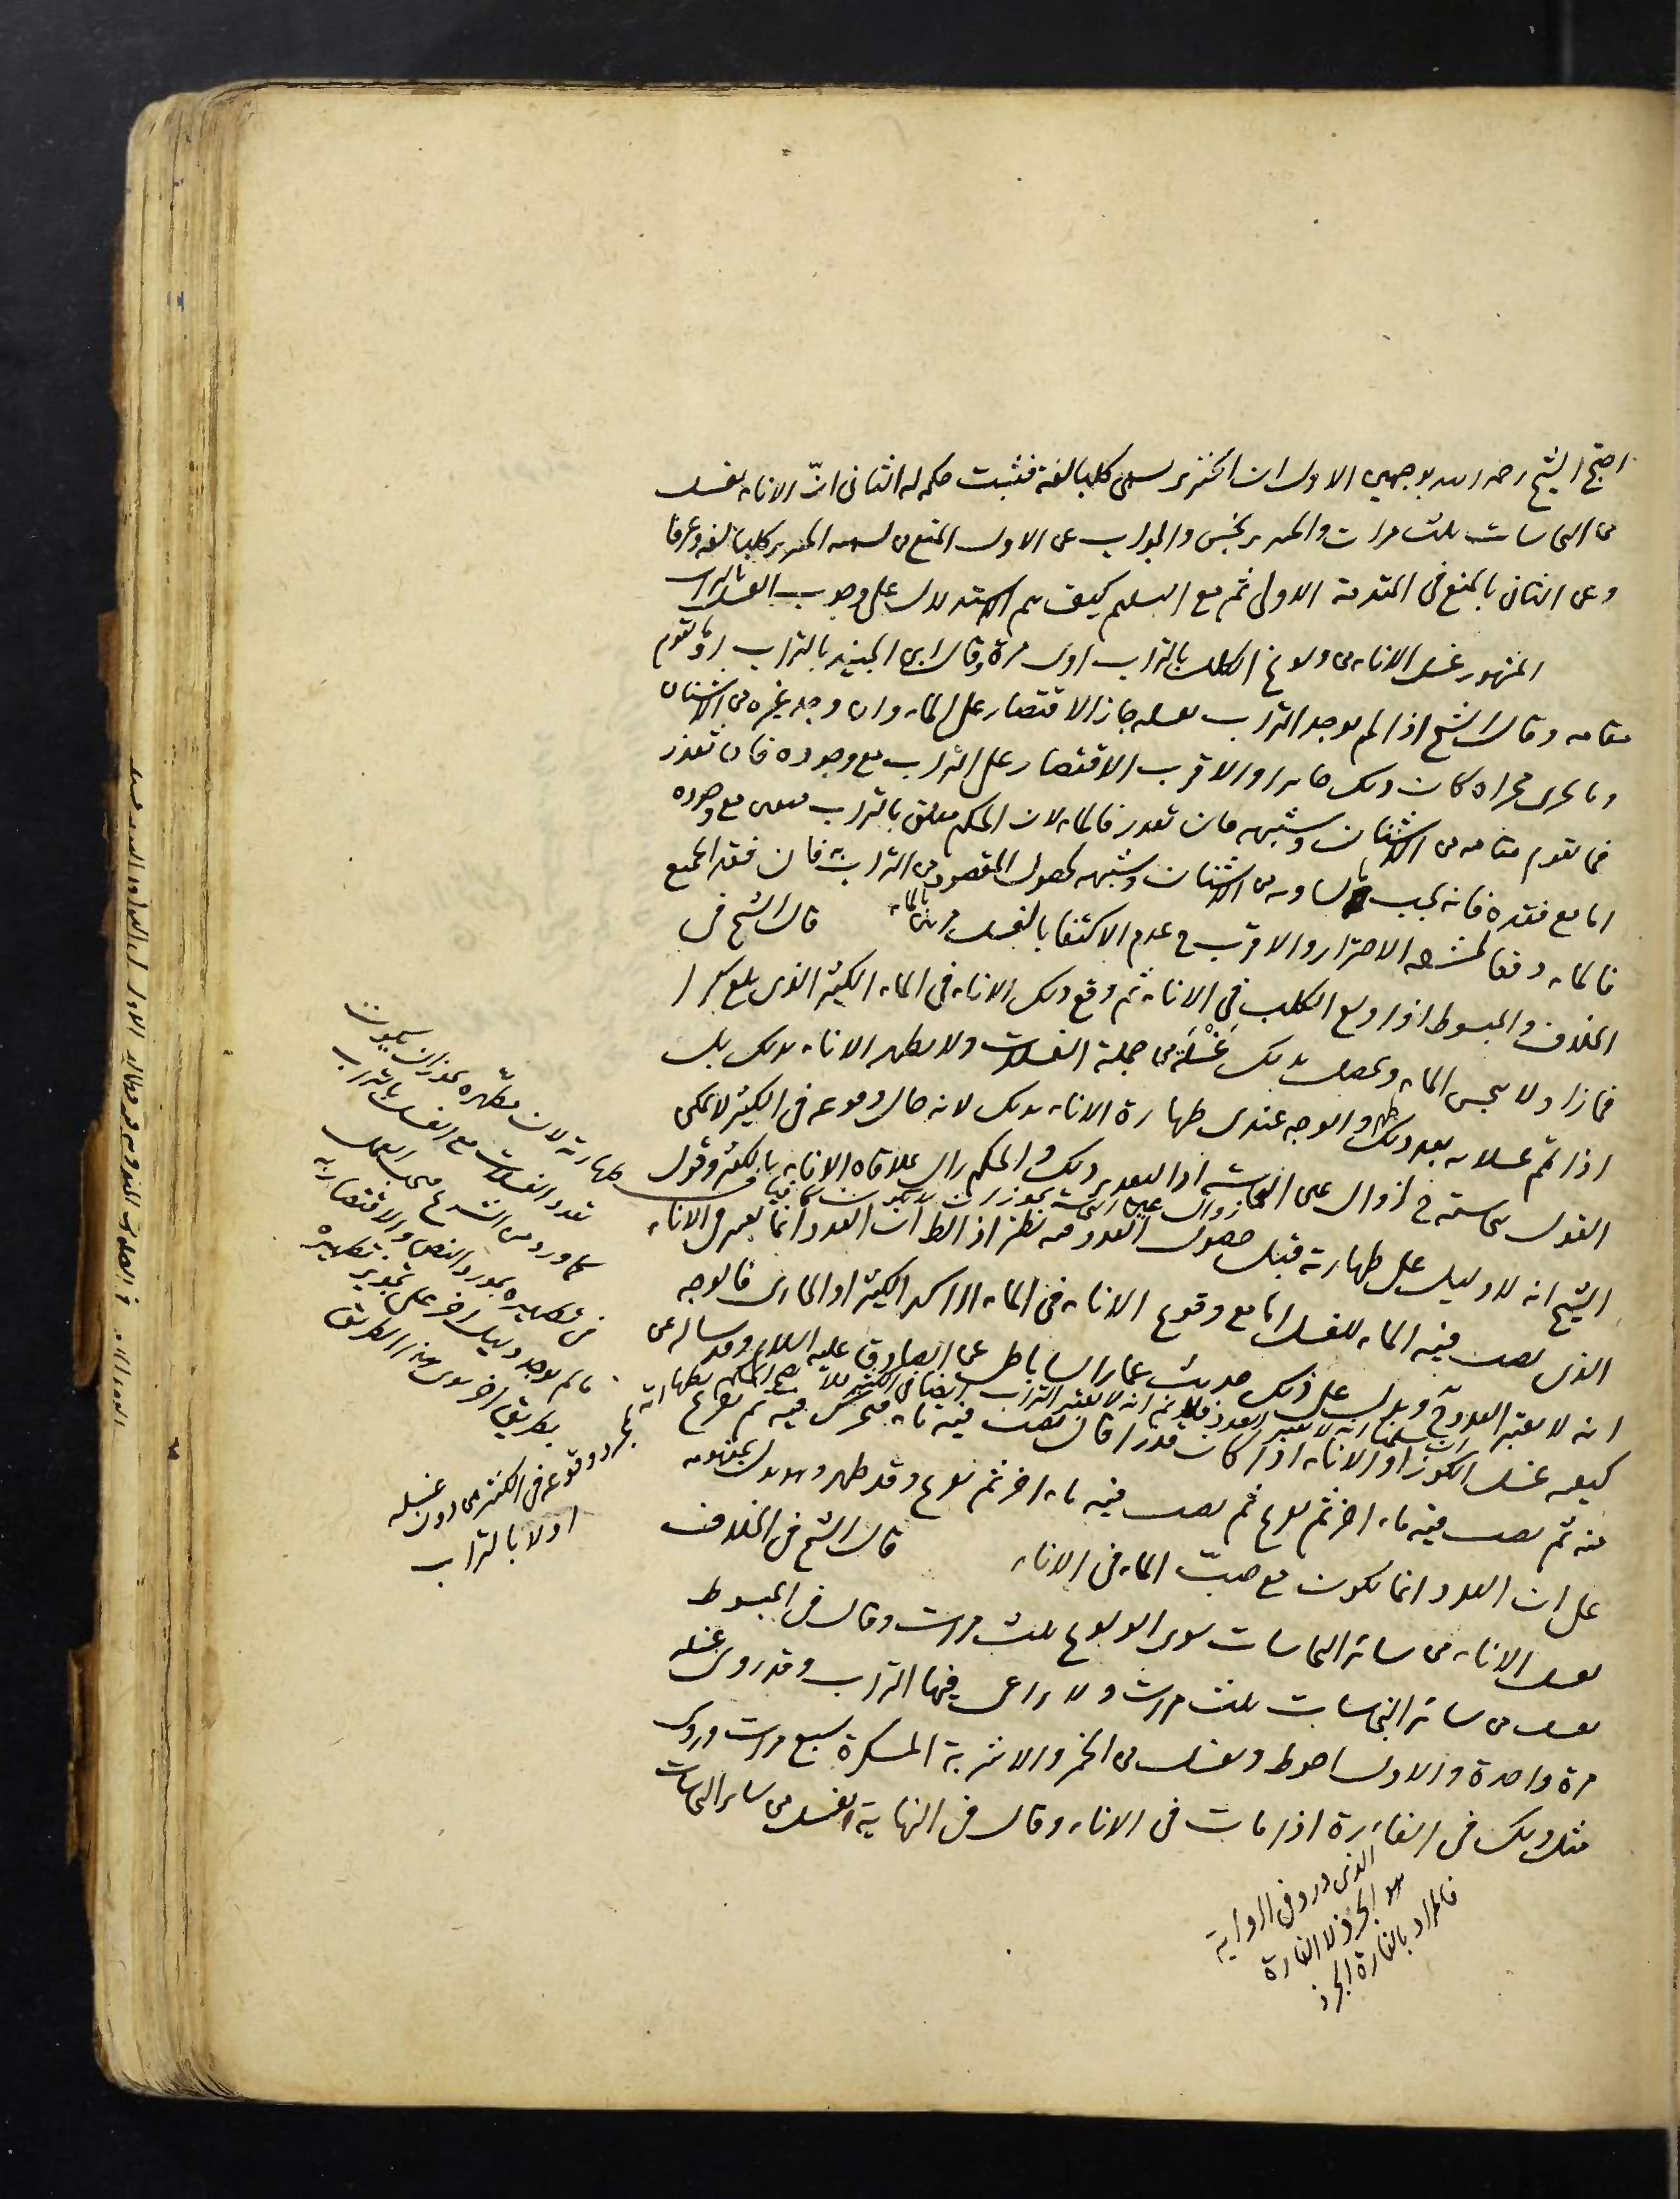 احتج الشيخ رحمه الله بوجهين الاول ان الخنزير يسمى كلبا لغة فثبت حكمه له الثاني انّ الاناء يغسل
من النجاسات ثلث مرات والخنزير نجس والجواب عن الاول المنع من تسميه الخنزير كلبا لغة وعرفا
وعن الثاني بالمنع في المقدمة الاولى ثم مع التسليم كيف يتم الاستدلال على وجوب الغسل بالتراب
المشهور غسل الاناء من ولوغ الكلب بالتراب اول مرة وقال ابن الجنيد بالتراب او ما يقوم
مقامه وقال الشيخ اذا لم يوجد التراب لغسله جاز الاقتصار على الماء وان وجد غيره من الاشنان
وما يجرى مجراه كان ذلك جايزا والاقرب الاقتصار على التراب مع وجوده فان تعذر
فما يقوم مقامه من الاشنان وشبهه فان تعذر فالماء لان الحكم معلق بالتراب فيتعين مع وجوده
اما مع فقده فانه يجب ما يساويه من الاشنان وشبهه لحصول المقصود من التراب به فان فقد الجميع
فالماء دفعا لمشقة الاحترار والاقرب ح عدم الاكتفا بالغسل مرتين بالماء قال الشيخ في
الخلاف والمبسوط اذا ولغ الكلب في الاناء ثم وقع ذلك الاناء في الماء الكثير الذى بلغ كرا
فما زاد لا ينجس الماء ويحصل بذلك غَسْلَة من جملة الغسلات ولا يطهر الاناء بذلك بل
اذا تم غسلاته بعد ذلك طهر والوجه عندى طهارة الاناء بذلك لانه حال وقوعه في الكثير لا يمكن
القول بنجاسته ح لزوال عين النجاسة اذ التقدير ذلك والحكم زال بملاقاة الاناء بالكثير وقول
زوال عين النجاسة يجوز ان لا يكون كافيا في
الشيخ انه لا دليل على طهارته قبل حصول العدد فيه نظر اذ الظاهر ان العدد انما يعتبر في الاناء
الذى يصب فيه الماء للغسل اما مع وقوع الاناء في الماء الراكد الكثير او الجارى فالوجه
انه لا يعتبر العدد ح ويدل على ذلك حديث عمار الساباطى عن الصادق عليه السلام وقد ساله عن
ان سلمنا انه لا يعتبر العدد فلا نم انه لا يعتبر التراب ايضا في الكثير فلا يصح الحكم بطهارته
كيف يغسل الكوز او الاناء اذا كان قذرا قال يصب فيه ماء فيحرك فيه ثم يفرغ
منه ثم يصب فيه ماء اخر ثم يفرغ ثم يصب فيه ماء اخر ثم يفرغ وقد طهر وهو يدل بمفهومه
على ان العدد انما يكون مع صبّ الماء في الاناء قال الشيخ في الخلاف
يغسل الاناء من سائر النجاسات سوى الولوغ ثلث مرات وقال في المبسوط
يغسل من سائر النجاسات ثلث مرات ولا يراعى فيها التراب وقد روى غسله
مرة واحدة والاول احوط ويغسل من الخمر والاشربة المسكرة سبع مرات وروى
مثل ذلك في الفارة اذا ماتت في الاناء وقال في النهاية يغسل من سائر النجاسات
طهارته لان مطهره يجوز ان يكون
تعدد الغسلات مع الغسل بالتراب
كما ورد من الشرع فيجب العمل
في تطهيره بمورد النص والاقتصار به
ما لم يوجد دليل اخر على تجويز تطهيره
بطريق اخر سوى هذا الطريق
بمجرد وقوعه في الكثير من دون غسله
اولا بالتراب
الذى ورد في الرواية
هو الجرذ لا الفارة
فالمراد بالفارة الجرذ